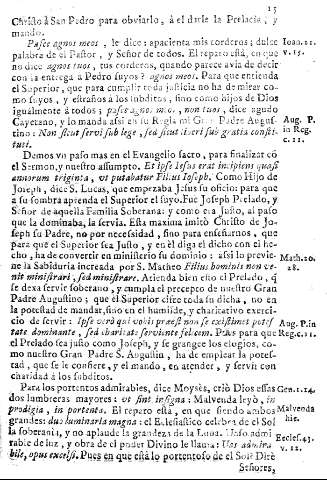 15
Christo à San Pedro para obviarlo, à el darle la Prelacia, y
mando.
Pasce agnos meos, le dice: apacienta mis corderos; dulce
palabra de el Pastor, y Señor de todos. El reparo està, en que
no dice agnos tuos, tus corderos, quando parece avia de decir
con la entrega à Pedro suyos? agnos meos. Para que entienda
el Superior, que para cumplir toda justicia no ha de mirar co-
mo suyos, y estraños à los subditos, sino como hijos de Dios
igualmente à todos: pasce agnos meos, non tuos, dice agudo
Cayetano, y lo manda assi en su Regla mi Gran Padre Augus-
tino: Non sicut servi sub lege, sed sicut liberi sub gratia consti-
tuti.
Ioan. 21.
v. 15.
Aug. P.
in Reg.
c. 11.
Demos un passo mas en el Evangelio sacro, para finalizar cõ
el Sermon, y nuestro assumpto. Et ipse Iesus erat incipiens quasi
annorum triginta, ut putabatur Filius Ioseph. Como Hijo de
Joseph, dice S. Lucas, que empezaba Jesus su oficio: para que
à su sombra aprenda el Superior el suyo. Fue Joseph Prelado, y
Señor de aquella Familia Soberana: y como era Justo, al passo
que la dominaba, la servia. Esta maxima imitò Christo de Jo-
seph su Padre, no por necessidad, sino para enseñarnos, que
para que el Superior sea Justo, y en èl diga el dicho con el he-
cho, ha de convertir en ministerio su dominio: assi lo previe-
ne la Sabiduria increada por S. Matheo Filius hominis non ve-
nit ministrari, sed ministrare. Atienda bien esto el Prelado, q̃
se dexa servir soberano, y cumpla el precepto de nuestro Gran
Padre Augustino; que el Superior cifre toda su dicha, no en
la potestad de mandar, sino en el humilde, y charitativo exerci-
cio de servir: Ipse verò qui vobis præest non se existimet potes-
tate dominante, sed charitate serviente felicem. Pues para que
el Prelado sea justo como Joseph, y se grangee los elogios, co-
mo nuestro Gran Padre S. Augustin, ha de emplear la potes-
tad, que se le confiere, y el mando, en atender, y servir con
charidad à los subditos.
Math. 20.
28.
Aug. P. in
Reg. c. 11.
Para los portentos admirables, dice Moysès, criò Dios essas
dos lumbreras mayores: ut sint in signa: Malvenda leyò, in
prodigia, in portenta. El reparo està, en que siendo ambos
grandes: duo luminaria magna: el Eclesiastico celebra de el Sol
la soberanìa, y no aplaude la grandeza de la Luna. Vaso admi-
rable de luz, y obra de el poder Divino le llama: Vas admira-
bile, opus excelsi. Pues en que està lo portentoso de el Sol? Dirè
Gen. 1. 14.
Malvenda
hic.
Eccles. 43.
v. 2.
Señores,